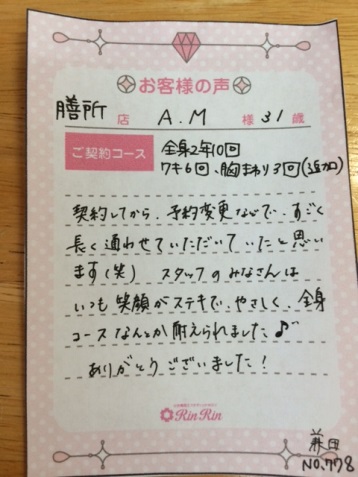 お客様の声
膳所 店 A.M 様 31歳
ご契約コース 全身2年10回
ワキ6回、胸まわり3回(追加)
契約してから、予約変更などで、すごく
長く通わせていただいていたと思い
ます(笑) スタッフのみなさんは
いつも笑顔がステキで、やさしく、全身
コースなんとか耐えられました♪
ありがとうございました!
RinRin
兼田
NO.778